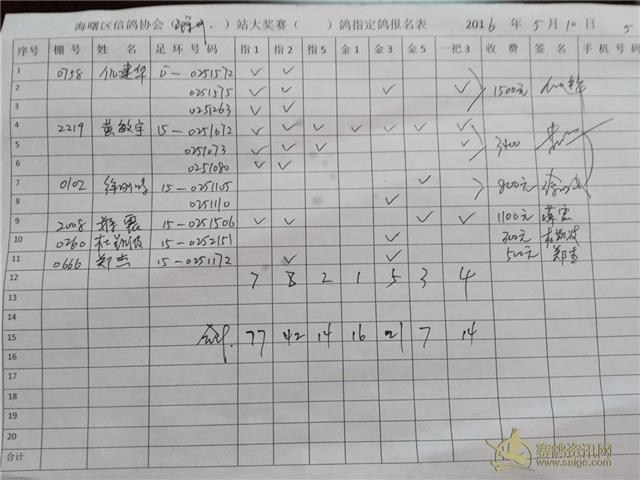 海曙区信鸽协会（ ）站大奖赛（ ）鸽指定鸽报名表 2016 年 5 月 10 日 5
序号 棚号 姓名 足环号码 指1 指2 指5 金1 金3 金5 一把3 收费 签名 手机号码
1 0758 仇建华 15-0251572 ✓ ✓
2 0251575 ✓ ✓ ✓ ✓ 1500元
3 0251263 ✓ ✓
4 2219 黄敏宇 15-0251072 ✓ ✓ ✓ ✓ ✓ ✓ ✓
5 0251073 ✓ ✓ ✓ ✓ 3400
6 0251080 ✓ ✓
7 0102 15-0251105 ✓ 800元
8 0251110 ✓
9 2008 15-0251506 ✓ ✓ ✓ ✓ 1100元
10 0260 15-0252151 ✓ 300元
11 0666 郑杰 15-0251172 ✓ ✓ 500元 郑杰
12 7 8 2 1 5 3 4
13
14
15 77 42 14 16 21 7 14
16
17
18
19
20
合计
赛鸽资讯网
www.saige.com